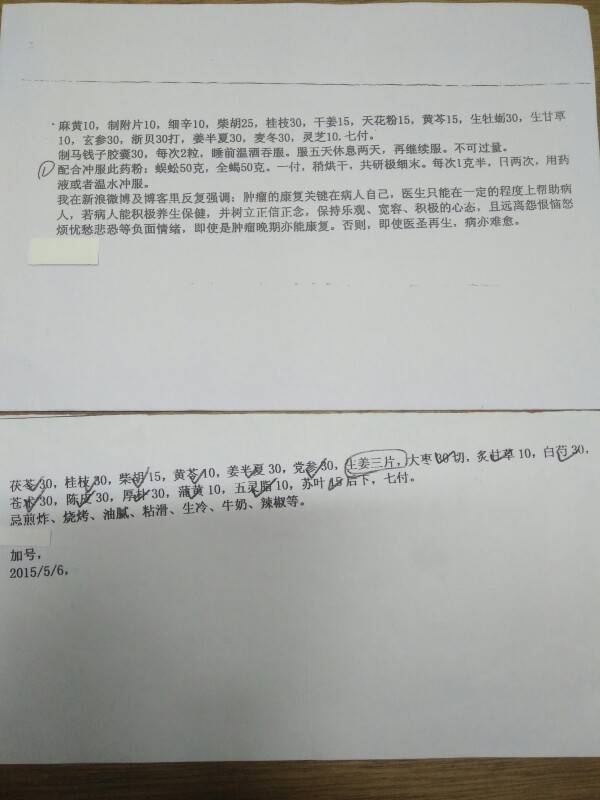 麻黄10，制附片10，细辛10，柴胡25，桂枝30，干姜15，天花粉15，黄芩15，生牡蛎30，生甘草
10，玄参30，浙贝30打，姜半夏30，麦冬30，灵芝10.七付。
制马钱子胶囊30，每次2粒，睡前温酒吞服。服五天休息两天，再继续服。不可过量。
① 配合冲服此药粉：蜈蚣50克，全蝎50克。一付，稍烘干，共研极细末。每次1克半，日两次，用药
液或者温水冲服。
我在新浪微博及博客里反复强调：肿瘤的康复关键在病人自己，医生只能在一定的程度上帮助病
人，若病人能积极养生保健，并树立正信正念，保持乐观、宽容、积极的心态，且远离怨恨恼怒
烦忧愁悲恐等负面情绪，即使是肿瘤晚期亦能康复。否则，即使医圣再生，病亦难愈。
茯苓30，桂枝30，柴胡15，黄芩10，姜半夏30，党参30，生姜三片，大枣30切，炙甘草10，白芍30，
苍术30，陈皮30，厚朴30，蒲黄10，五灵脂10，苏叶15后下，七付。
忌煎炸、烧烤、油腻、粘滑、生冷、牛奶、辣椒等。
加号，
2015/5/6，